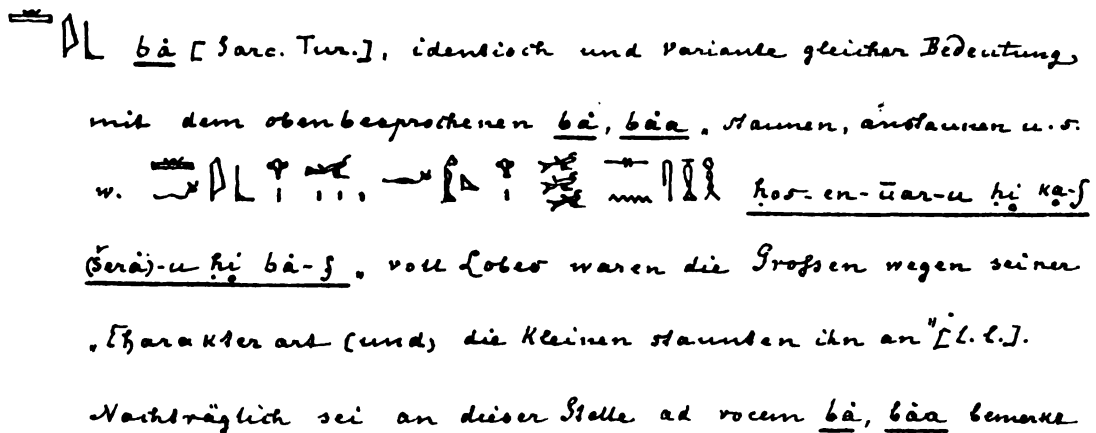 bȧ [Sarc. Tur.], identisch und Variante gleicher Bedeutung,
mit dem obenbesprochenen bȧ, bȧa „staunen, anstaunen u. s.
w. ḥos-en-ūar-u ḥi ḳa-f
(šerȧ)-u ḥi bȧ-f „voll Lobes waren die Grossen wegen seiner
„Charakterart (und) die Kleinen staunten ihn an" [l. l.].
Nachträglich sei an dieser Stelle ad vocem bȧ, bȧa bemerkt